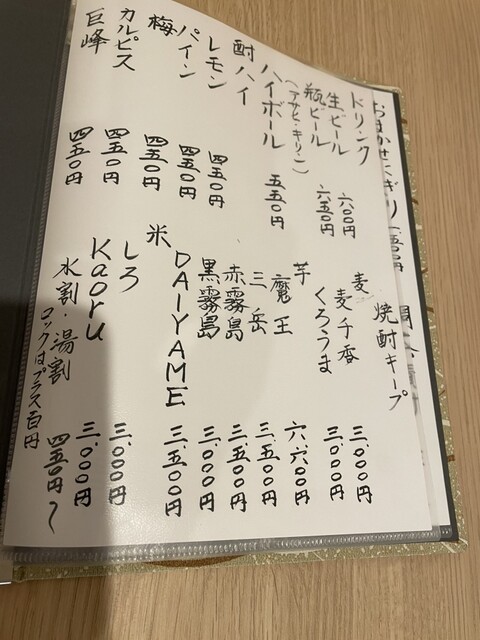 おまかせにぎり 一、五〇〇円
ドリンク
生ビール 六〇〇円
瓶ビール 六五〇円
(アサヒ・キリン)
ハイボール 五五〇円
酎ハイ
レモン 四五〇円
パイン 四五〇円
梅 四五〇円
カルピス 四五〇円
巨峰 四五〇円
焼酎キープ
麦
麦千香 三、〇〇〇円
くろうま 三、〇〇〇円
芋
魔王 六、六〇〇円
三岳 三、五〇〇円
赤霧島 三、五〇〇円
黒霧島 三、〇〇〇円
DAIYAME 三、五〇〇円
米
しろ 三、〇〇〇円
Kaoru 三、〇〇〇円
水割・湯割 四五〇円〜
ロックはプラス百円